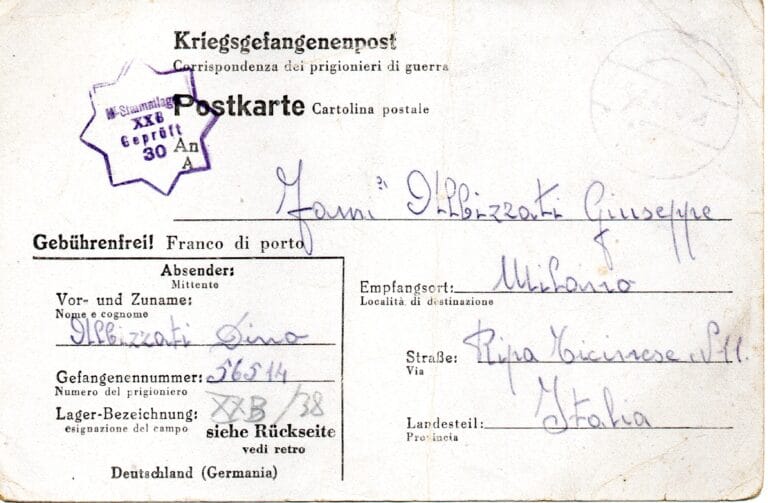 Kriegsgefangenenpost
Corrispondenza dei prigionieri di guerra
Postkarte Cartolina postale
M-Stammlager
XXB
Geprüft
30
An
A
Fam. Albizzati Giuseppe
Gebührenfrei! Franco di porto
Absender:
Mittente
Vor- und Zuname:
Nome e cognome
Albizzati Dino
Gefangenennummer: 56514
Numero del prigioniero
Lager-Bezeichnung: XXB/38
esignazione del campo
siehe Rückseite
vedi retro
Deutschland (Germania)
Empfangsort: Milano
Località di destinazione
Straße: Ripa Ticinese
Via
Landesteil: Italia
Provincia